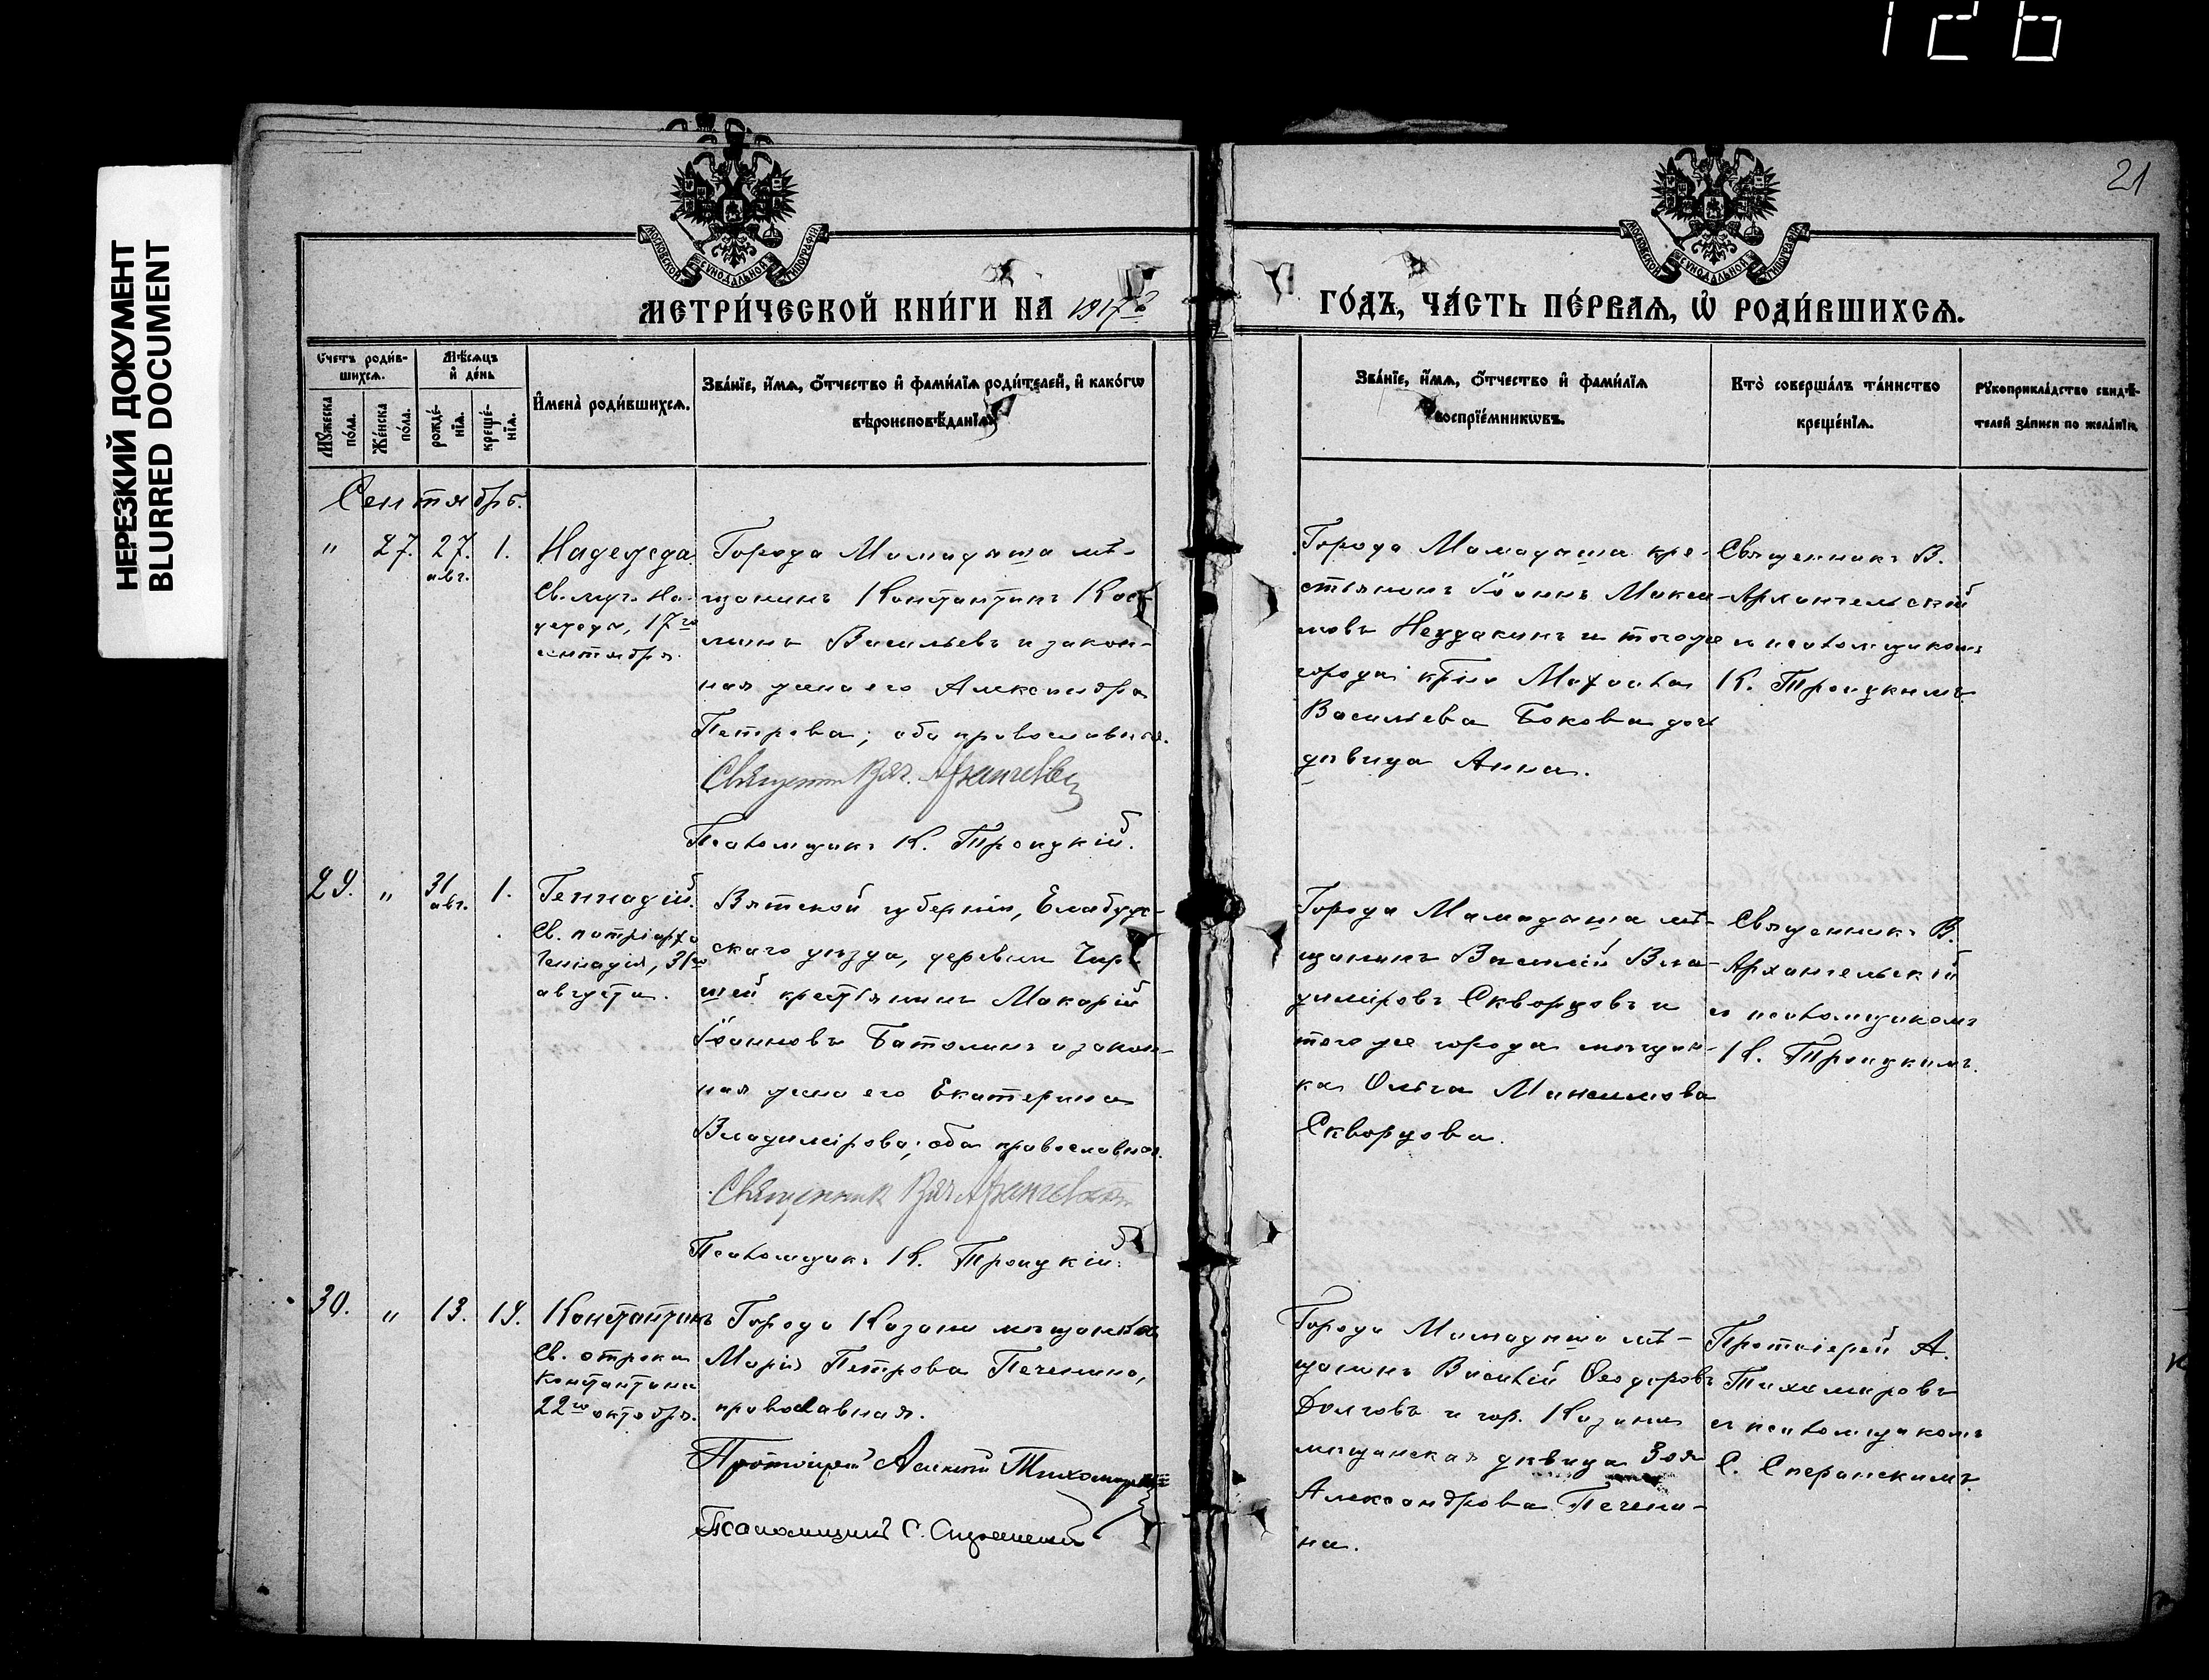 126
НЕРЕЗКИЙ ДОКУМЕНТ
BLURRED DOCUMENT
21
МОСКОВСКОЙ СѴНОДАЛЬНОЙ ТИПОГРАФІИ
МОСКОВСКОЙ СѴНОДАЛЬНОЙ ТИПОГРАФІИ
МЕТРИ́ЧЕСКОЙ КНИ́ГИ НА 1917 го
ГО́ДЪ, ЧА́СТЬ ПЕ́РВАѦ, Ѡ҆ РОДИ́ВШИХСѦ.
Счетъ роди́в-
шихсѧ.
Мѣ́сѧцъ
и҆ де́нь
Мꙋ́жеска
по́ла.
Же́нска
по́ла.
рожде́-
нїѧ.
креще́-
нїѧ.
И҆мена̀ роди́вшихсѧ.
Зва́нїе, и҆́мѧ, ѻ҆́тчество и҆ фами́лїѧ роди́телей, и҆ како́гѡ
вѣроисповѣ́данїѧ.
Зва́нїе, и҆́мѧ, ѻ҆́тчество и҆ фами́лїѧ
воспрїе́мникѡвъ.
Кто̀ соверша́лъ та́инство
креще́нїѧ.
Рꙋкоприкла́дство свидѣ́-
телей за́писи по жела́нїю.
Сентябрь.
" 27. 27. авг. 1.
Надежда.
Св. муч. На-
дежды, 17го
сентября.
Города Мамадыша мѣ-
щанинъ Константинъ Кос-
минъ Васильевъ и закон-
ная жена его Александра
Петрова; оба православные.
Священ. Вяч. Архангельск
Псаломщикъ К. Троицкій.
Города Мамадыша кре-
стьянинъ Іоаннъ Макси-
мовъ Неудакинъ и того же
города
Васильева Бокова дочь
дѣвица Анна.
Священникъ В.
Архангельскій
съ псаломщикомъ
К. Троицкимъ.
29. " 31 авг. 1.
Геннадій.
Св. патріарха
Геннадія, 31го
августа.
Вятской губерніи, Елабуж-
скаго уѣзда, деревни Чир-
шей крестьянинъ Макарій
Іоанновъ Батолинъ и закон-
ная жена его Екатерина
Владимірова; оба православные.
Священник Вяч Архангельский
Псаломщикъ К. Троицкій.
Города Мамадыша мѣ-
щанинъ Василій Вла-
диміровъ Скворцовъ и
того же города мѣщан-
ка Ольга Максимова
Скворцова.
Священникъ В.
Архангельскій
съ псаломщикомъ
К. Троицкимъ.
30. " 13. 19.
Константинъ
Св. отрока
Константина
22го октября.
Города Казани мѣщанка
Марія Петрова Печенина,
православная.
Протоіерей Алексій Тихомировъ
Псаломщикъ С. Сперанскій
Города Мамадыша мѣ-
щанинъ Василій Ѳеодоровъ
Долговъ и гор. Казани
мѣщанская дѣвица Зоя
Александрова Печени-
на.
Протоіерей А.
Тихомировъ
съ псаломщикомъ
С. Сперанскимъ.